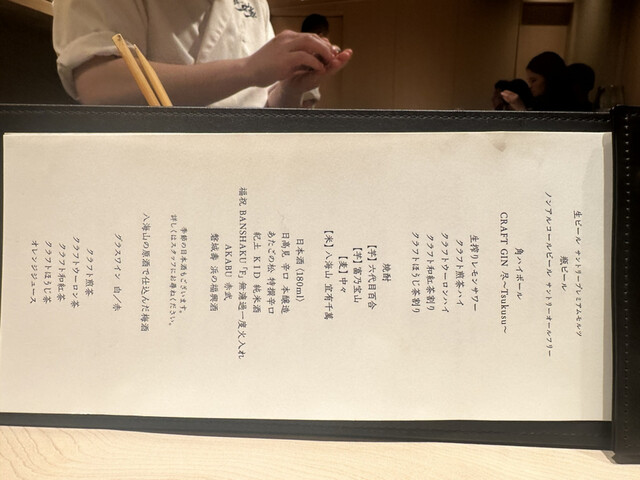 生ビール サントリープレミアムモルツ
瓶ビール
ノンアルコールビール サントリーオールフリー
角ハイボール
CRAFT GIN 尽~Tsukusu~
生搾りレモンサワー
クラフト煎茶ハイ
クラフトウーロンハイ
クラフト和紅茶割り
クラフトほうじ茶割り
焼酎
【芋】六代目百合
【芋】富乃宝山
【麦】中々
【米】八海山 宜有千萬
日本酒 (180ml)
日高見 辛口 本醸造
あたごの松 特撰辛口
紀土 KID 純米酒
福祝 BANSHAKU「F」無濾過一度火入れ
AKABU 赤武
磐城壽 浜の福興酒
季節の日本酒もございます。
詳しくはスタッフにお尋ねください。
八海山の原酒で仕込んだ梅酒
グラスワイン 白/赤
クラフト煎茶
クラフトウーロン茶
クラフト和紅茶
クラフトほうじ茶
オレンジジュース